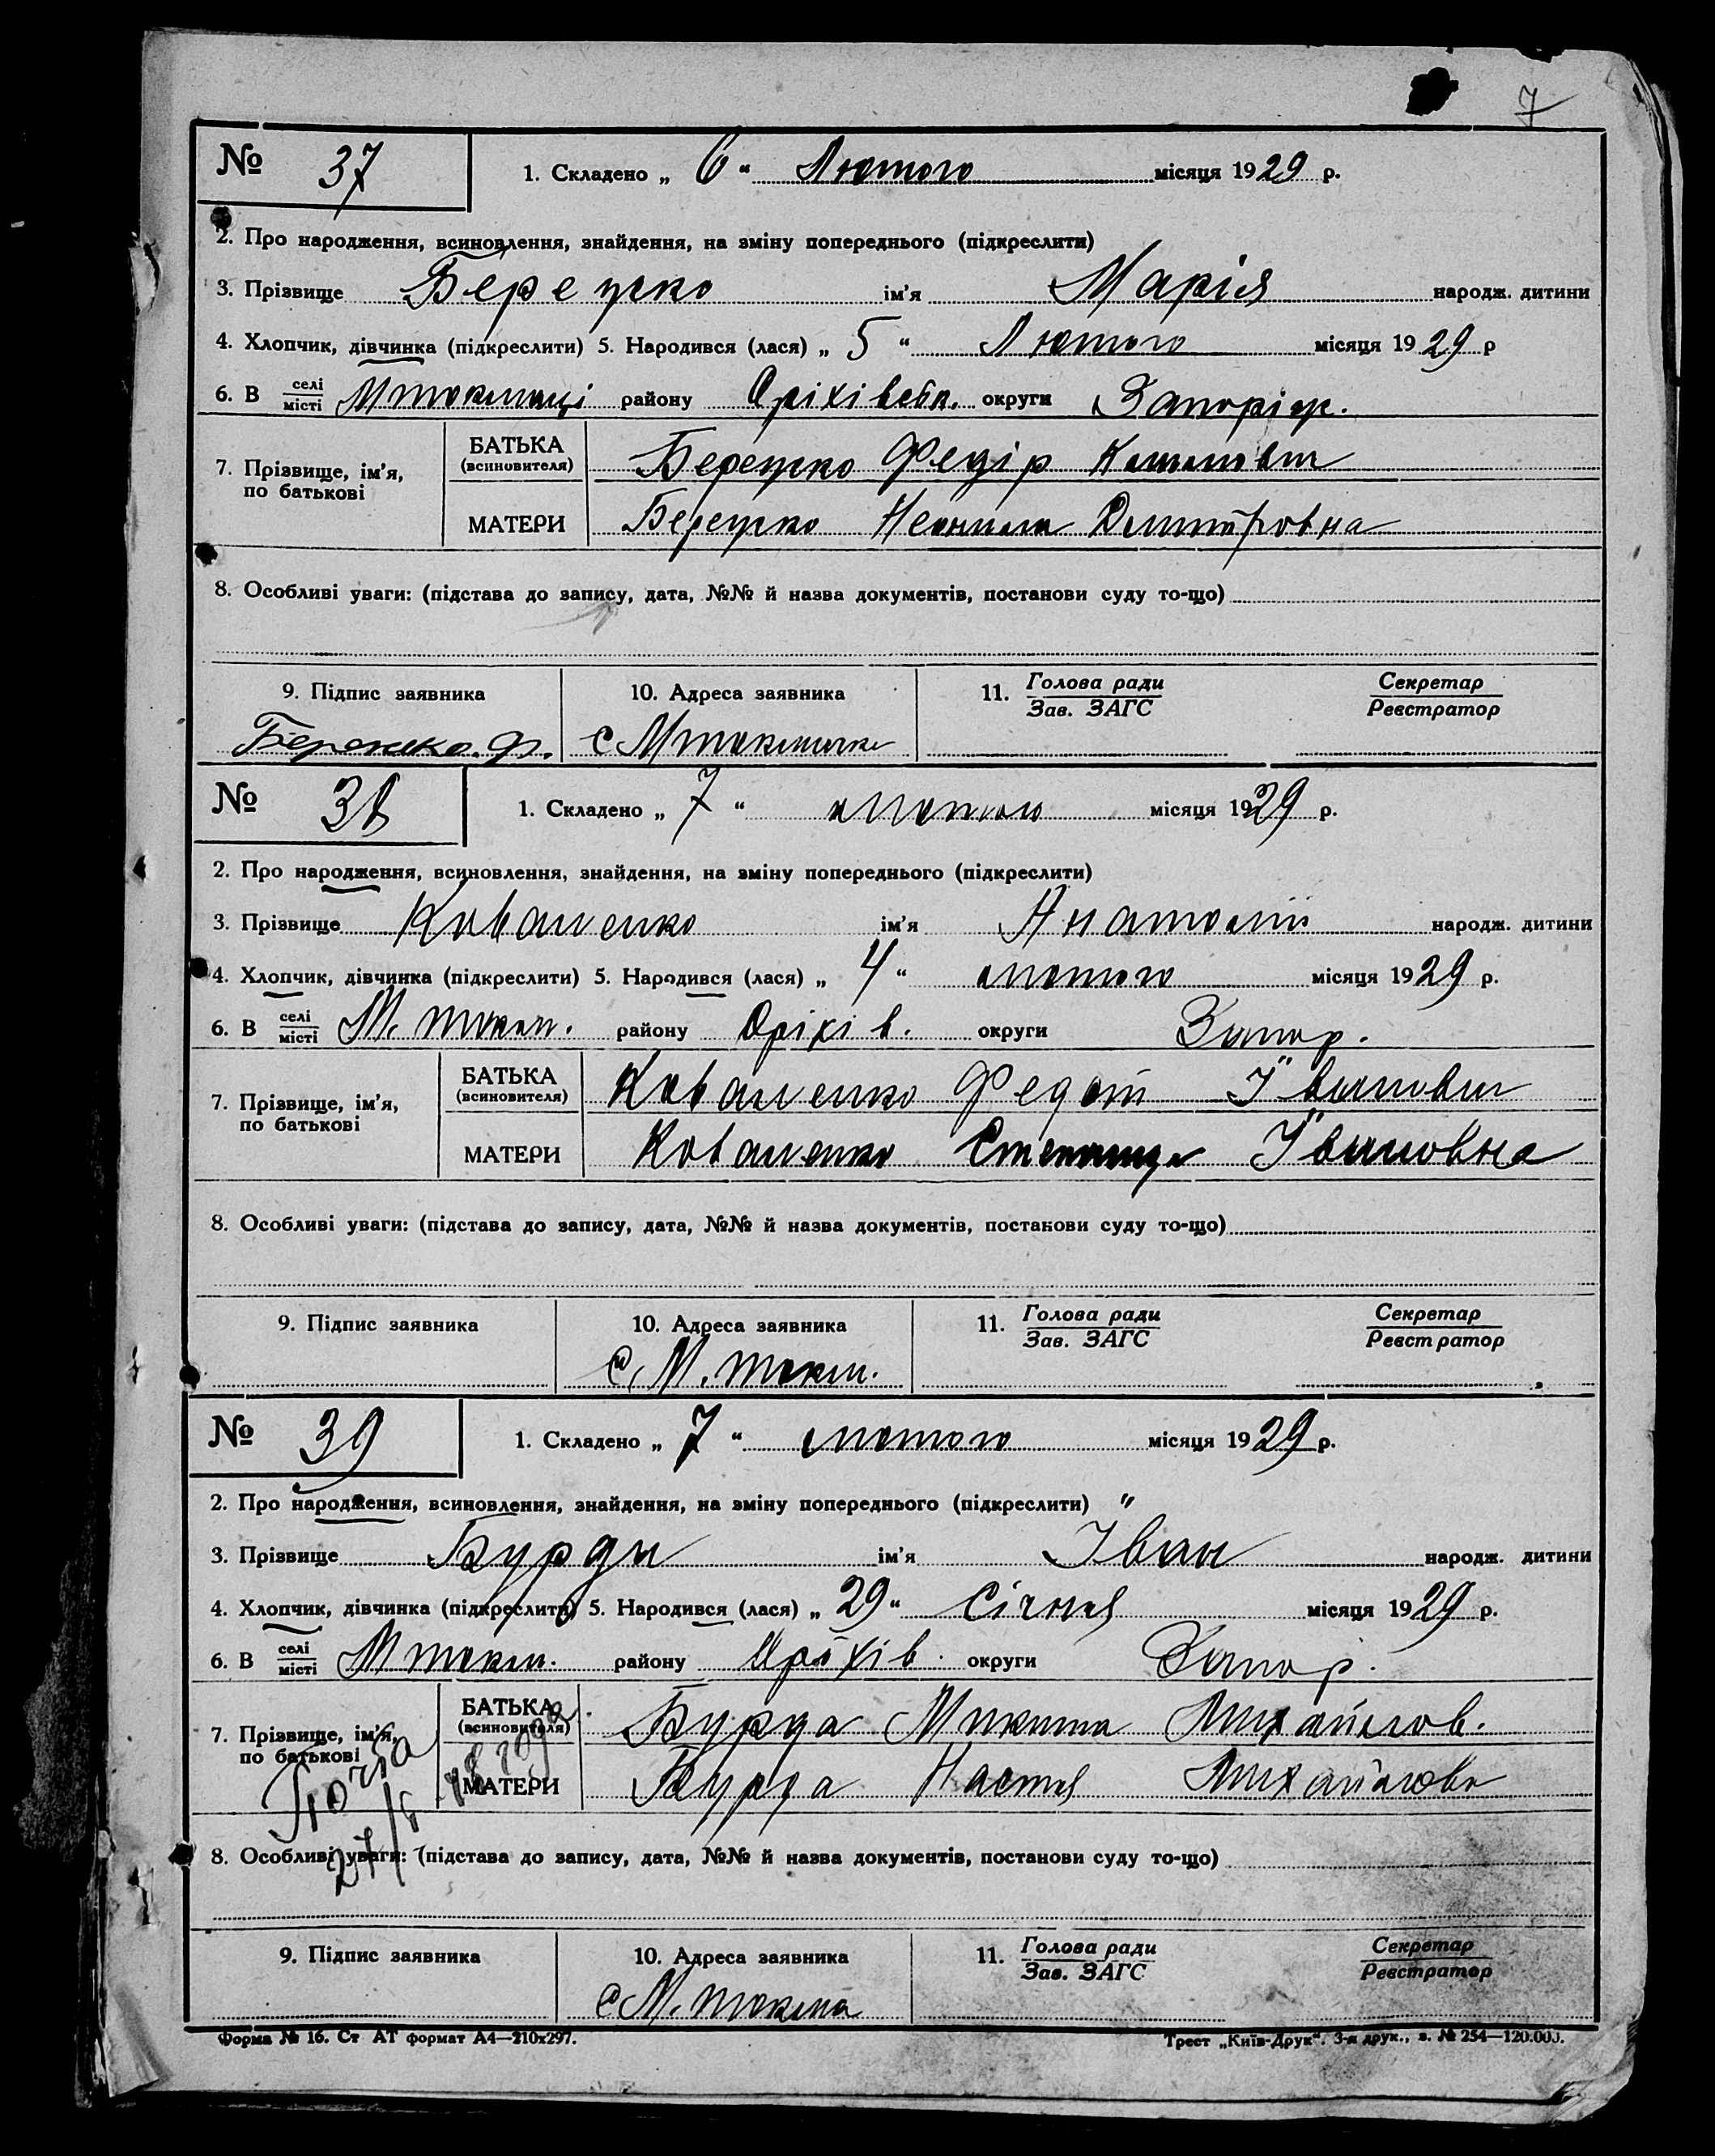 7
№ 37 1. Складено „ 6 " Лютого місяця 1929 р.
2. Про народження, всиновлення, знайдення, на зміну попереднього (підкреслити)
3. Прізвище Берецько ім'я Марія народж. дитини
4. Хлопчик, дівчинка (підкреслити) 5. Народився (лася) „ 5 " Лютого місяця 1929 р
6. В селі/місті Мтокмаці району Оріхівськ. округи Запоріж.
7. Прізвище, ім'я, по батькові
БАТЬКА (всиновителя) Федір
МАТЕРИ Неонила Димитровна
8. Особливі уваги: (підстава до запису, дата, №№ й назва документів, постанови суду то-що)
9. Підпис заявника 10. Адреса заявника 11. Голова ради/Зав. ЗАГС Секретар/Реєстратор
с Мтокмачка
№ 38 1. Складено „ 7 " лютого місяця 1929 р.
2. Про народження, всиновлення, знайдення, на зміну попереднього (підкреслити)
3. Прізвище Коваленко ім'я Анатолій народж. дитини
4. Хлопчик, дівчинка (підкреслити) 5. Народився (лася) „ 4 " лютого місяця 1929 р.
6. В селі/місті М. токм. району Оріхів. округи Запор.
7. Прізвище, ім'я, по батькові
БАТЬКА (всиновителя) Коваленко Федот Іванович
МАТЕРИ Коваленко Степанида Івановна
8. Особливі уваги: (підстава до запису, дата, №№ й назва документів, постанови суду то-що)
9. Підпис заявника 10. Адреса заявника 11. Голова ради/Зав. ЗАГС Секретар/Реєстратор
с. М. токм.
№ 39 1. Складено „ 7 " лютого місяця 1929 р.
2. Про народження, всиновлення, знайдення, на зміну попереднього (підкреслити) "
3. Прізвище Бурда ім'я Іван народж. дитини
4. Хлопчик, дівчинка (підкреслити) 5. Народився (лася) „ 29 " Січня місяця 1929 р.
6. В селі/місті Мтокм. району Оріхів. округи Запор.
7. Прізвище, ім'я, по батькові
БАТЬКА (всиновителя) Бурда Микита Михайлов.
МАТЕРИ Бурда Настя Михайловн
8. Особливі уваги: (підстава до запису, дата, №№ й назва документів, постанови суду то-що)
9. Підпис заявника 10. Адреса заявника 11. Голова ради/Зав. ЗАГС Секретар/Реєстратор
с М. токма
Форма № 16. Ст АТ формат А4—210х297. Трест „Київ-Друк". 3-я друк., з. № 254—120.000.